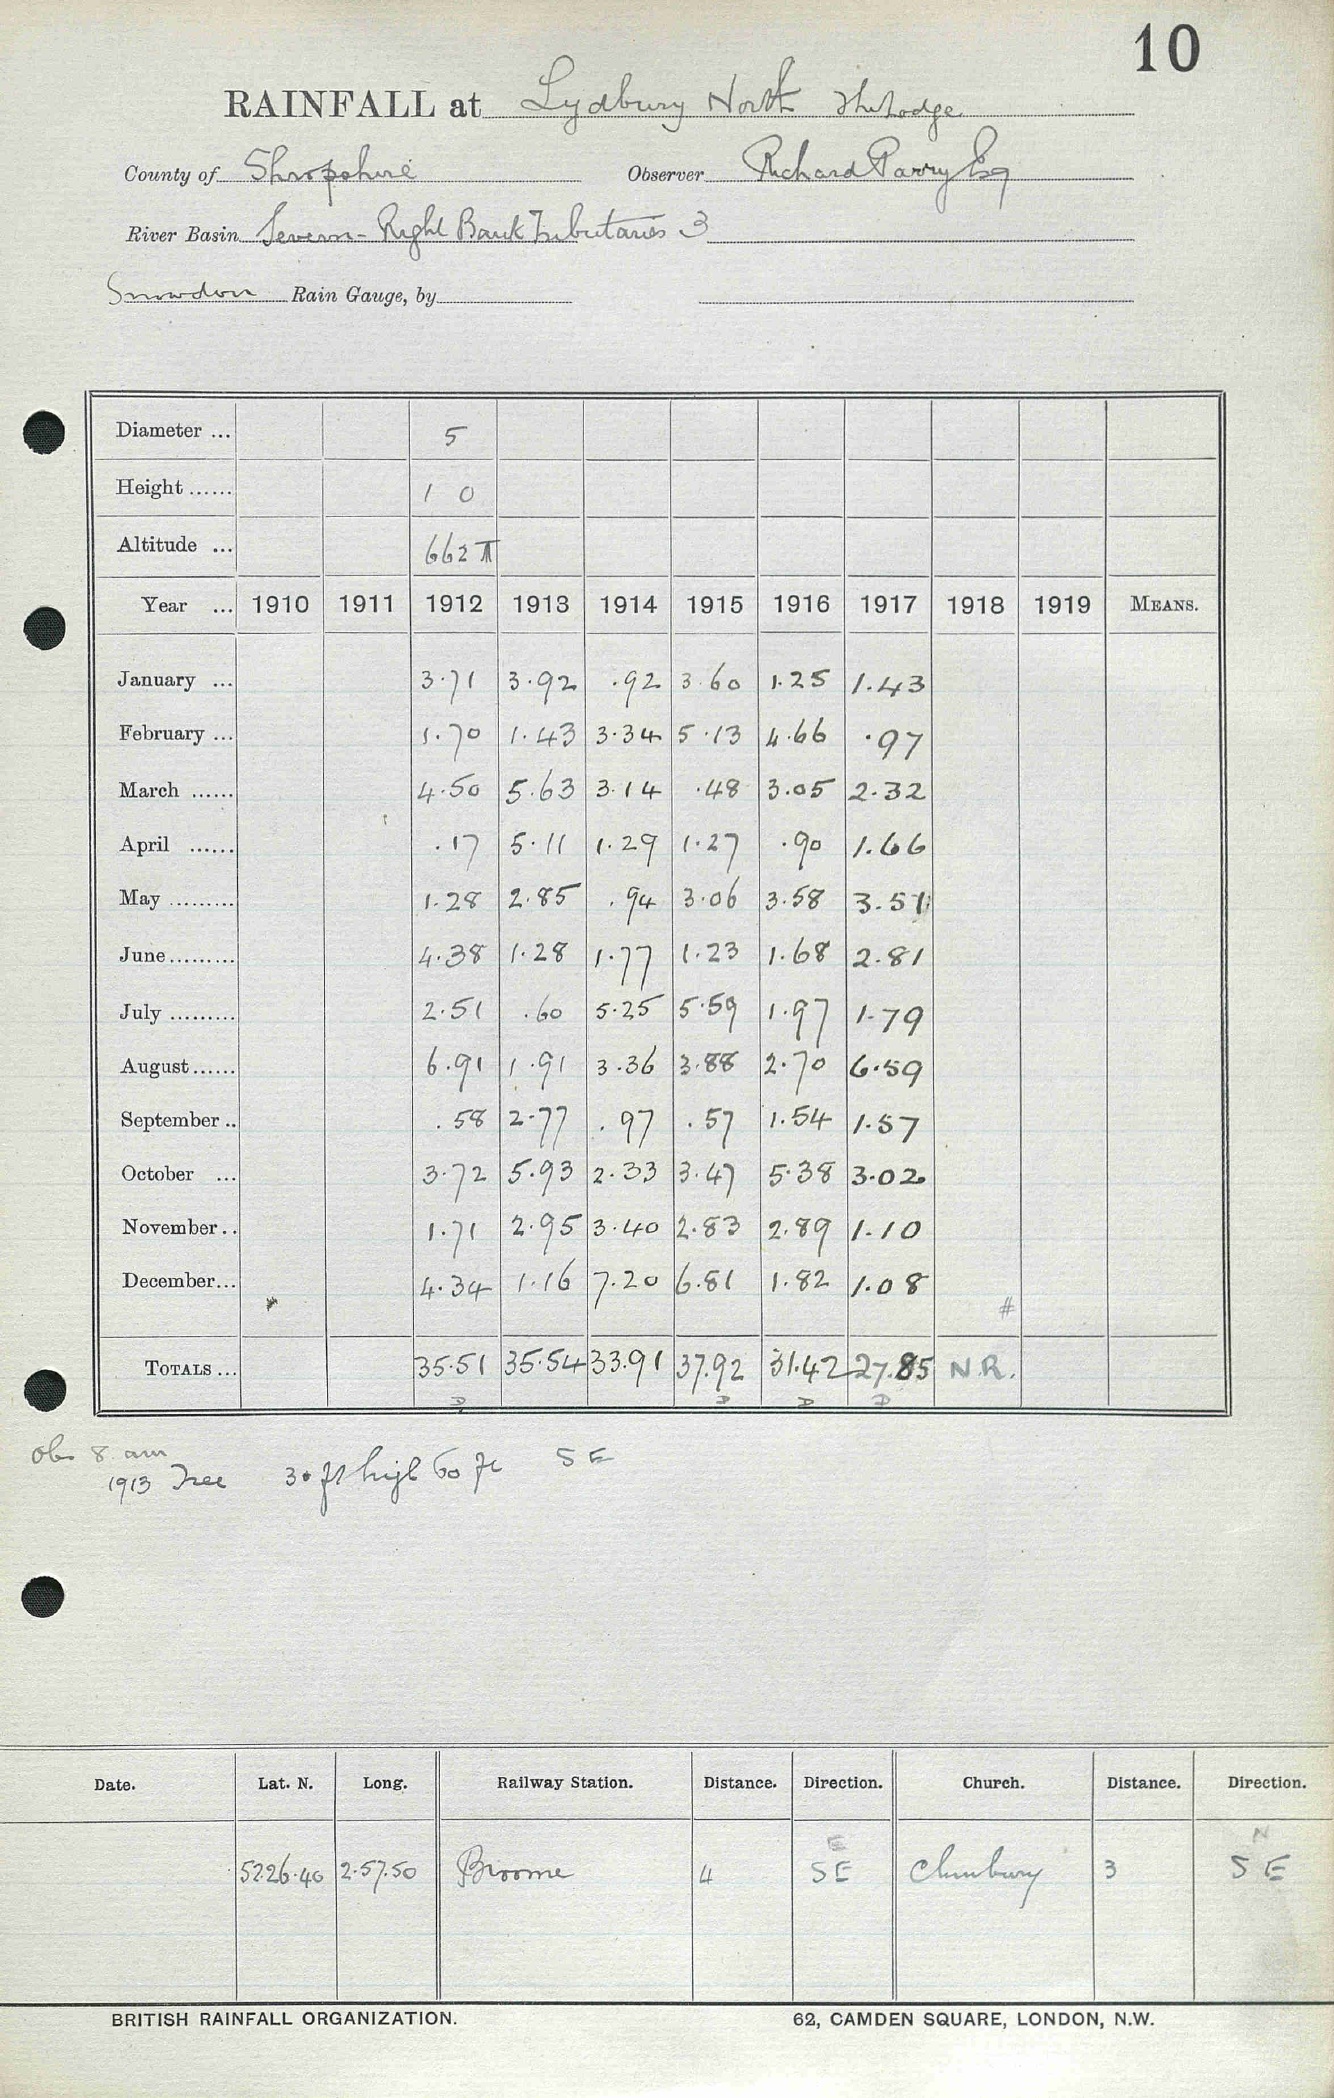 10
RAINFALL at Lydbury North The Lodge
County of Shropshire Observer Richard Parry Esq
River Basin Severn - Right Bank Tributaries 3
Snowdon Rain Gauge, by
Diameter ... 5
Height ...... 1 0
Altitude ... 662 T
Year ... 1910 1911 1912 1913 1914 1915 1916 1917 1918 1919 MEANS.
January ... 3.71 3.92 .92 3.60 1.25 1.43
February ... 1.70 1.43 3.34 5.13 4.66 .97
March ...... 4.50 5.63 3.14 .48 3.05 2.32
April ...... .17 5.11 1.29 1.27 .90 1.66
May ......... 1.28 2.85 .94 3.06 3.58 3.51
June ......... 4.38 1.28 1.77 1.23 1.68 2.81
July ......... 2.51 .60 5.25 5.59 1.97 1.79
August ...... 6.91 1.91 3.36 3.88 2.70 6.59
September .. .58 2.77 .97 .57 1.54 1.57
October ... 3.72 5.93 2.33 3.47 5.38 3.02
November .. 1.71 2.95 3.40 2.83 2.89 1.10
December ... 4.34 1.16 7.20 6.81 1.82 1.08
#
TOTALS ... 35.51 35.54 33.91 37.92 31.42 27.85 N.R.
D D D D
obs 8 am
1913 Tree 30 ft high 60 ft SE
Date. Lat. N. Long. Railway Station. Distance. Direction. Church. Distance. Direction.
E N
52.26.40 2.57.50 Broome 4 SE 3 SE
BRITISH RAINFALL ORGANIZATION. 62, CAMDEN SQUARE, LONDON, N.W.